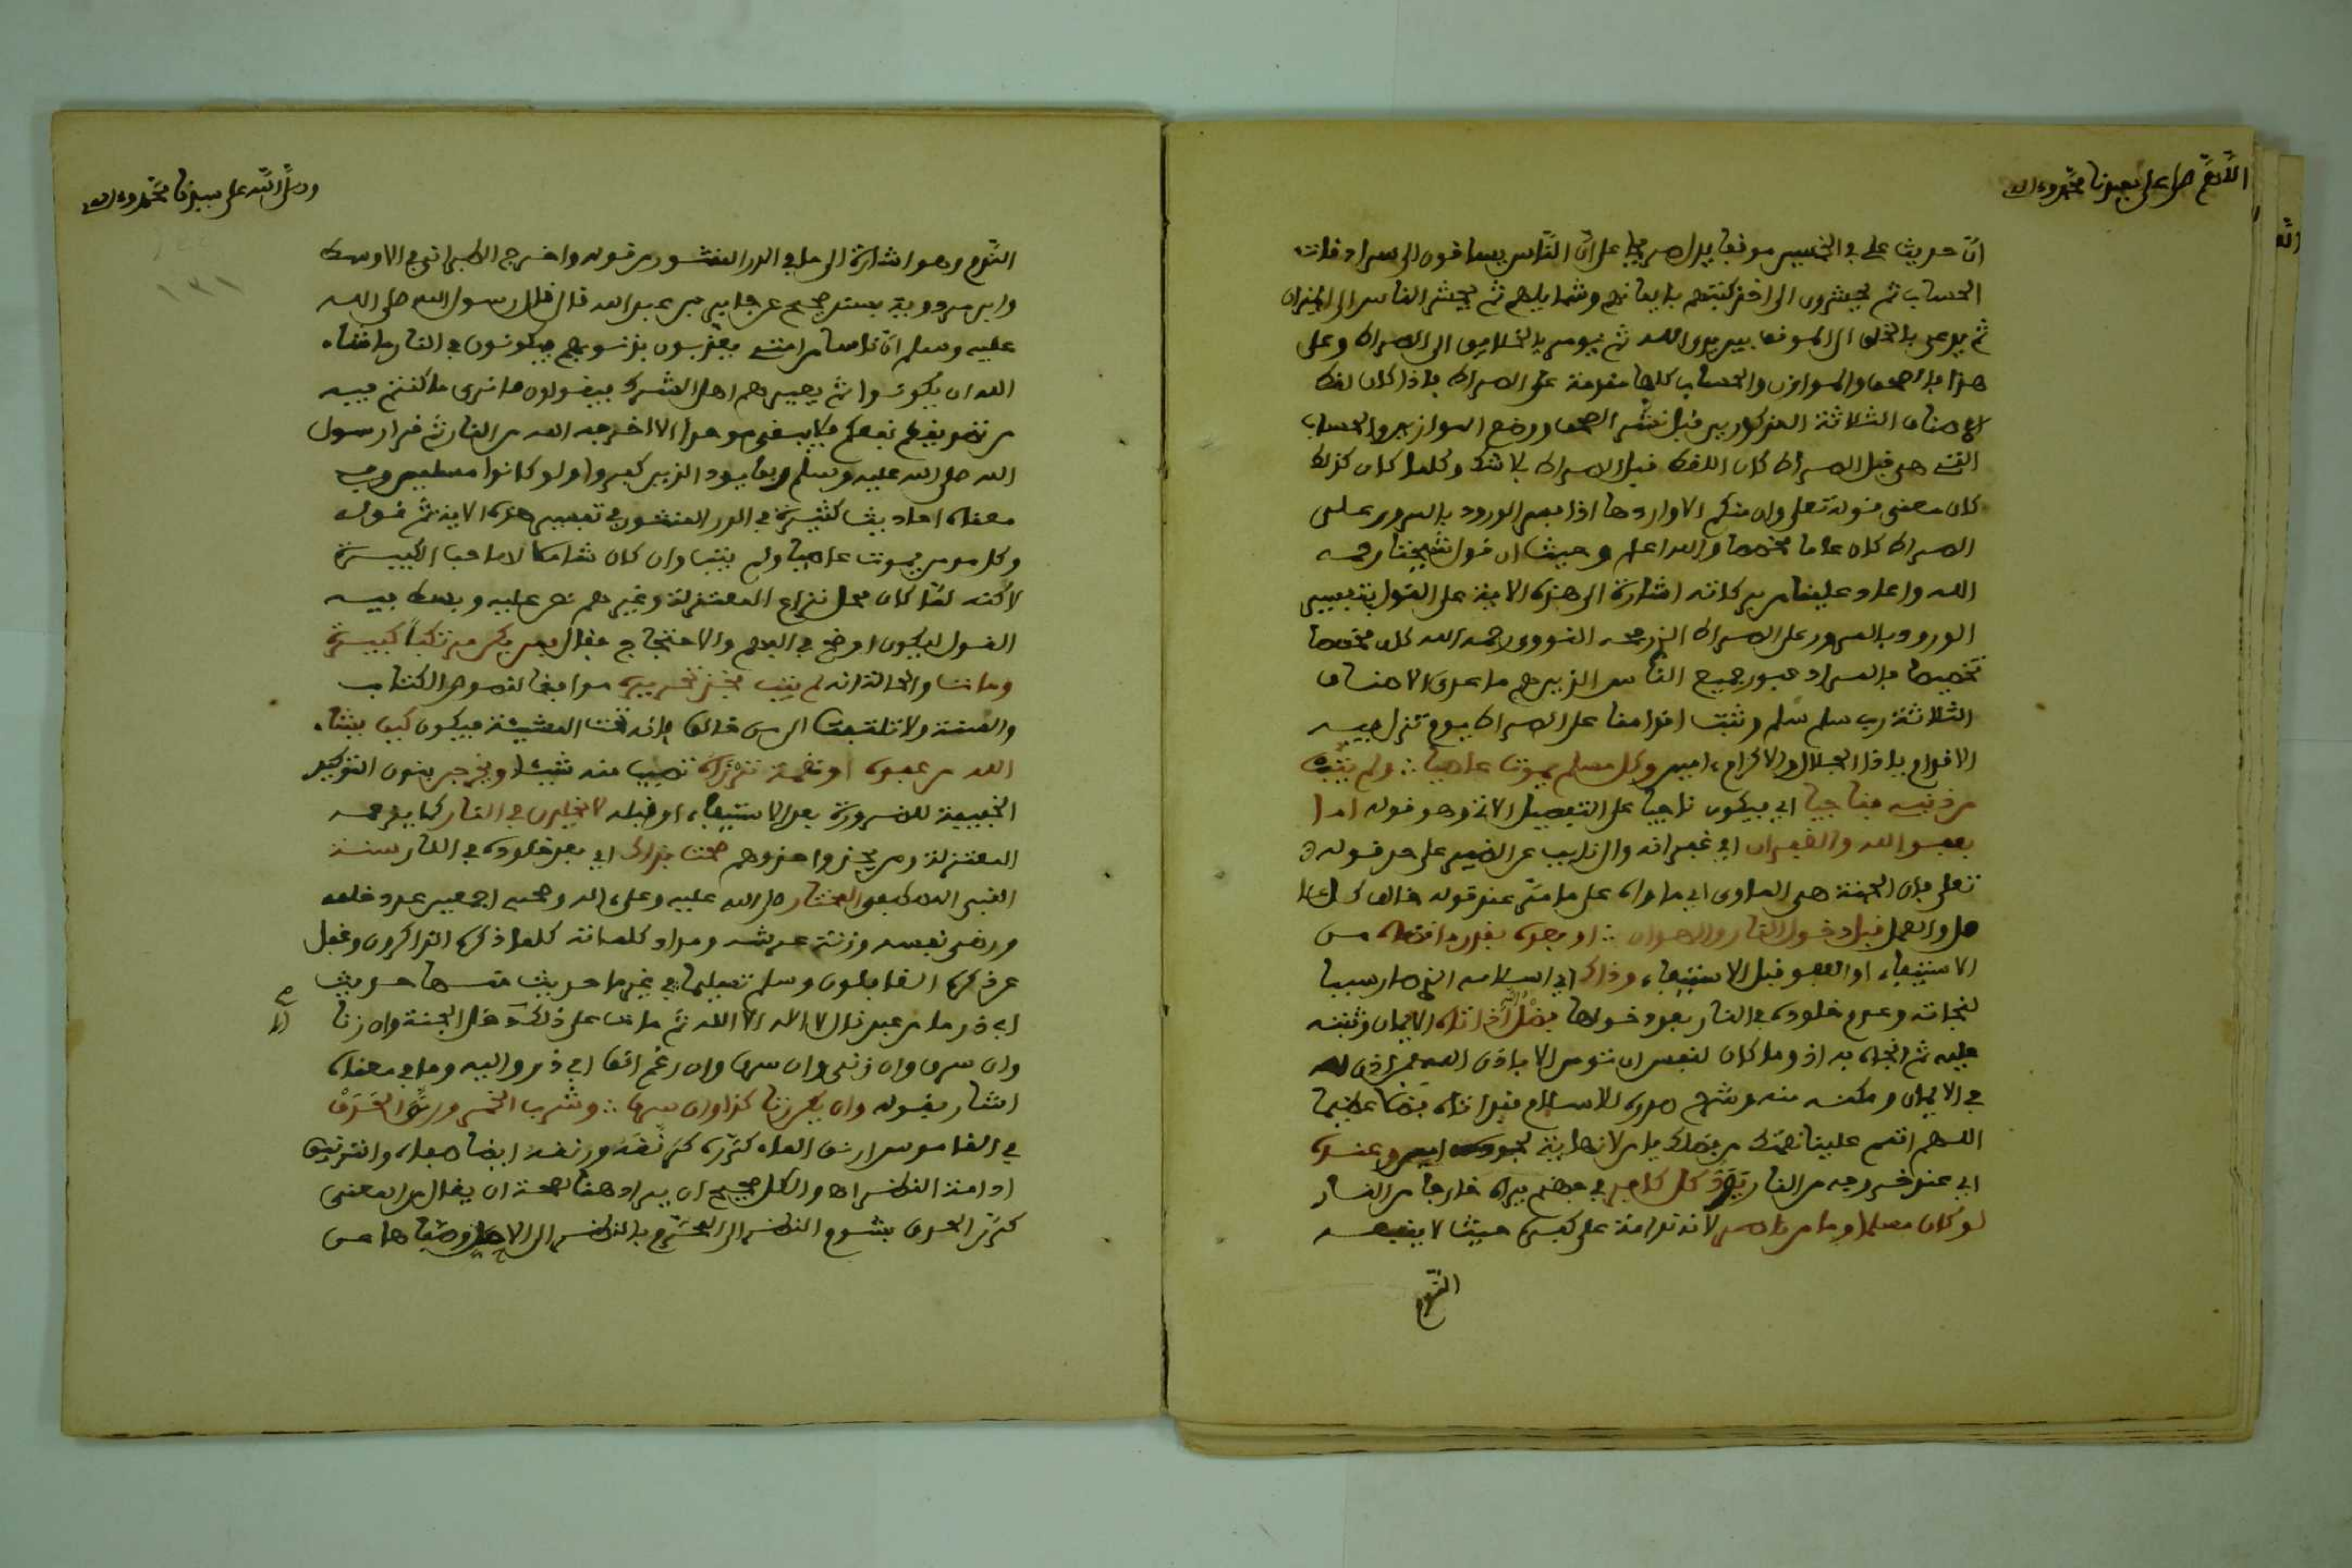 اللهم صل على سيدنا محمد وءاله
ان حديث على في الخمسين موقفا يدل صريحا على ان الناس يساقون الى سراد فات
الحساب ثم يحشرون الى اخذ كتبهم بايمانهم وشمايلهم ثم يحشر الناس الى الميزان
ثم يدعى بالخلق الى الموقف بين يدي الله ثم يومر بالخلايق الى الصراط وعلى
هذا فالصحف والموازن والحساب كلها مقدمة على الصراط فاذا كان لقط
الاصناف الثلاثة المذكورين قبل نشر الصحف ووضع الموازين والحساب
التي هي قبل الصراط كان اللقط قبل الصراط بلا شك وكلما كان كذلك
كان معنى قوله تعلى وان منكم الا واردها اذا فسر الورود بالمرور على
الصراط كان عاما مخصصا والله اعلم وحيث ان قول شيخنا رحمه
الله واعاد علينا من بركاته اشارة الى هذه الاية على القول بتفسير
الورود بالمرور على الصراط الذي صححه النووي رحمه الله كان مخصصا
تخصيصا بالمراد عبور جميع الناس الذين هم ما عدى الاصناف
الثلاثة رب سلم سلم وثبت اقدامنا على الصراط يوم تزل فيه
الاقدام ياذا الجلال والاكرام ءامين وكل مسلم يموت عاصيا ولم يتب
من ذنبه فناجيا اي يكون ناجيا على التفصيل الاتي وهو قوله اما
بعفو الله والغفران اي غفرانه وال نايب عن الضمير على حد قوله
تعلى فان الجنة هي الماوى اي ماواه على ما مر عند قوله
قبل دخول النار والهوان او بعده بقدر ما اقتضاه من
الاستيفاء او العفو قبل الاستيفاء وذاك اي اسلامه الذي صار سببا
لنجاته وعدم خلوده في النار بعد دخولها بفضل الله اتاه الايمان وثبته
عليه ثم انجاه به اذ وما كان لنفس ان تومن الا باذن الله فمن اذن له
في الايمان ومكنه منه وشرح صدره للاسلام فقد اتاه فضلا عظيما
اللهم اتمم علينا نعمتك من فضلك يا من لا نهاية لجوده ءامين وعنده
اي عند خروجه من النار يود كل كافر في جهنم يراه خارجا من النار
لو كان مسلما وما من ناصر لانه ندامة على كفره حيث لا ينفعه
الندم
وصلى الله على سيدنا محمد وءاله
١٣١
الندم وهو اشارة الى ما في الدر المنثور من قوله واخرج الطبراني في الاوسط
وابن مردويه بسند صحيح عن جابر بن عبد الله قال قال رسول الله صلى الله
عليه وسلم ان ناسا من امتي يعذبون بذنوبهم فيكونون في النار ما شاء
الله ان يكونوا ثم يعيرهم اهل الشرك فيقولون ما نرى ما كنتم فيه
من تصديقكم نفعكم فلا يبقى موحد الا اخرجه الله من النار ثم قرا رسول
الله صلى الله عليه وسلم ربما يود الذين كفروا لو كانوا مسلمين وفي
معناه احاديث كثيرة في الدر المنثور في تفسير هذه الاية ثم قوله
وكل مومن يموت عاصيا ولم يتب وان كان شاملا لصاحب الكبيرة
لاكنه لما كان محل نزاع المعتزلة وغيرهم نص عليه وبسط فيه
القول ليكون اوضح في البيان والاحتجاج فقال فمن يكن مرتكبا كبيرة
وماتا والحالة انه لم يتب فخذ تحريره موافقا لنصوص الكتاب
والسنة ولا تلتفت الى من خالف فانه تحت المشيئة فيكون كيف يشاء
الله من عفوه او نقمة تدركه تصيب منه شيئا ويخرجن بنون التوكيد
الخفيفة للضرورة بعد الاستيفاء او قبله لا تخليد في النار كما يزعمه
المعتزلة ومن يحذوا حذوهم صحت بذاك اي بعدم خلوده في النار سنة
النبي المصطفى المختار صلى الله عليه وعلى ءاله وصحبه اجمعين عدد خلقه
ورضى نفسه وزنة عرشه ومداد كلماته كلما ذكره الذاكرون وغفل
عن ذكره الغافلون وسلم تسليما في غير ما حديث منها حديث
ابي ذر ما من عبد قال لا اله الا الله ثم مات على ذلك الا دخل الجنة وان زنا
وان سرق وان زنى وان سرق وان رغم انف ابي ذر واليه وما في معناه
اشار بقوله وان يكن زنا كذا وان سرق وشرب الخمر
في القاموس
كدر العرق بشوم النظر الى المحرم